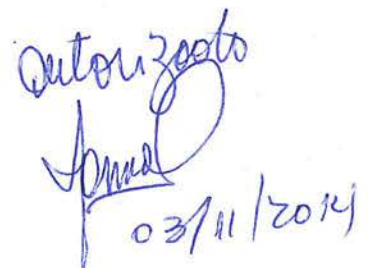 autorizado
03/11/2014